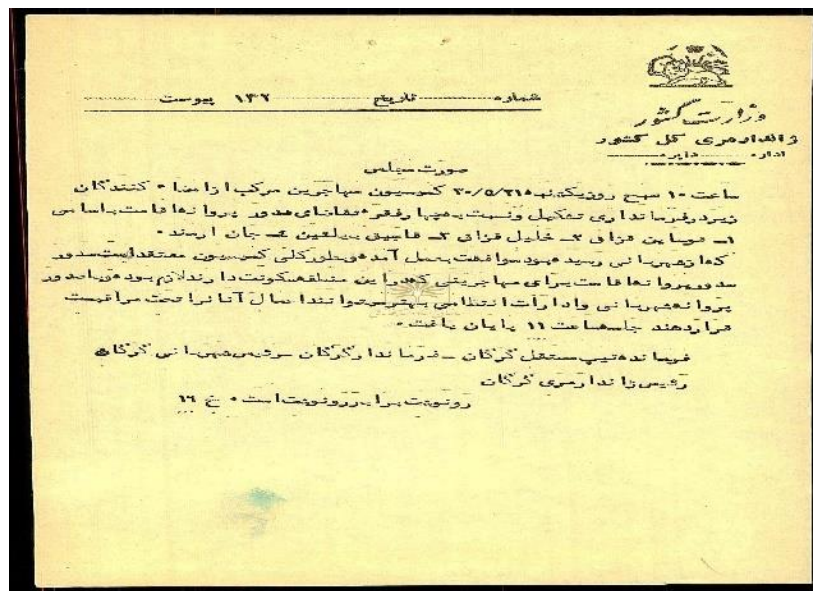 وزارت کشور
ژاندارمری کل کشور
اداره دایره
شماره تاریخ ۱۳۲ پیوست
صورت مجلس
ساعت ۱۰ صبح روز یکشنبه ۳۰/۵/۲۱۵ کمسیون مهاجرین مرکب از امضاء کنندگان
زیر در فرمانداری تشکیل ونسبت به چهار فقره تقاضای صدور پروانه اقامت باسامی
۱ـ قزاق ۲ـ خلیل قزاق ۳ـ ۴ـ جان ارمند
که از شهربانی رسیده بود موافقت بعمل آمده وبطور کلی کمسیون معتقد است صدور
صدور پروانه اقامت برای مهاجرینی که در این منطقه سکونت دارند لازم بوده وبا صدور
پروانه شهربانی وادارات انتظامی بهتر میتوانند اعمال آنانرا تحت مراقبت
قرار دهند جلسه ساعت ۱۱ پایان یافت۰
فرمانده تیپ مستقل گرگان ـ فرماندار گرگان ـ رئیس شهربانی گرگان
رئیس ژاندارمری گرگان
رونوشت برابر رونوشت است۰ خ ۱۶